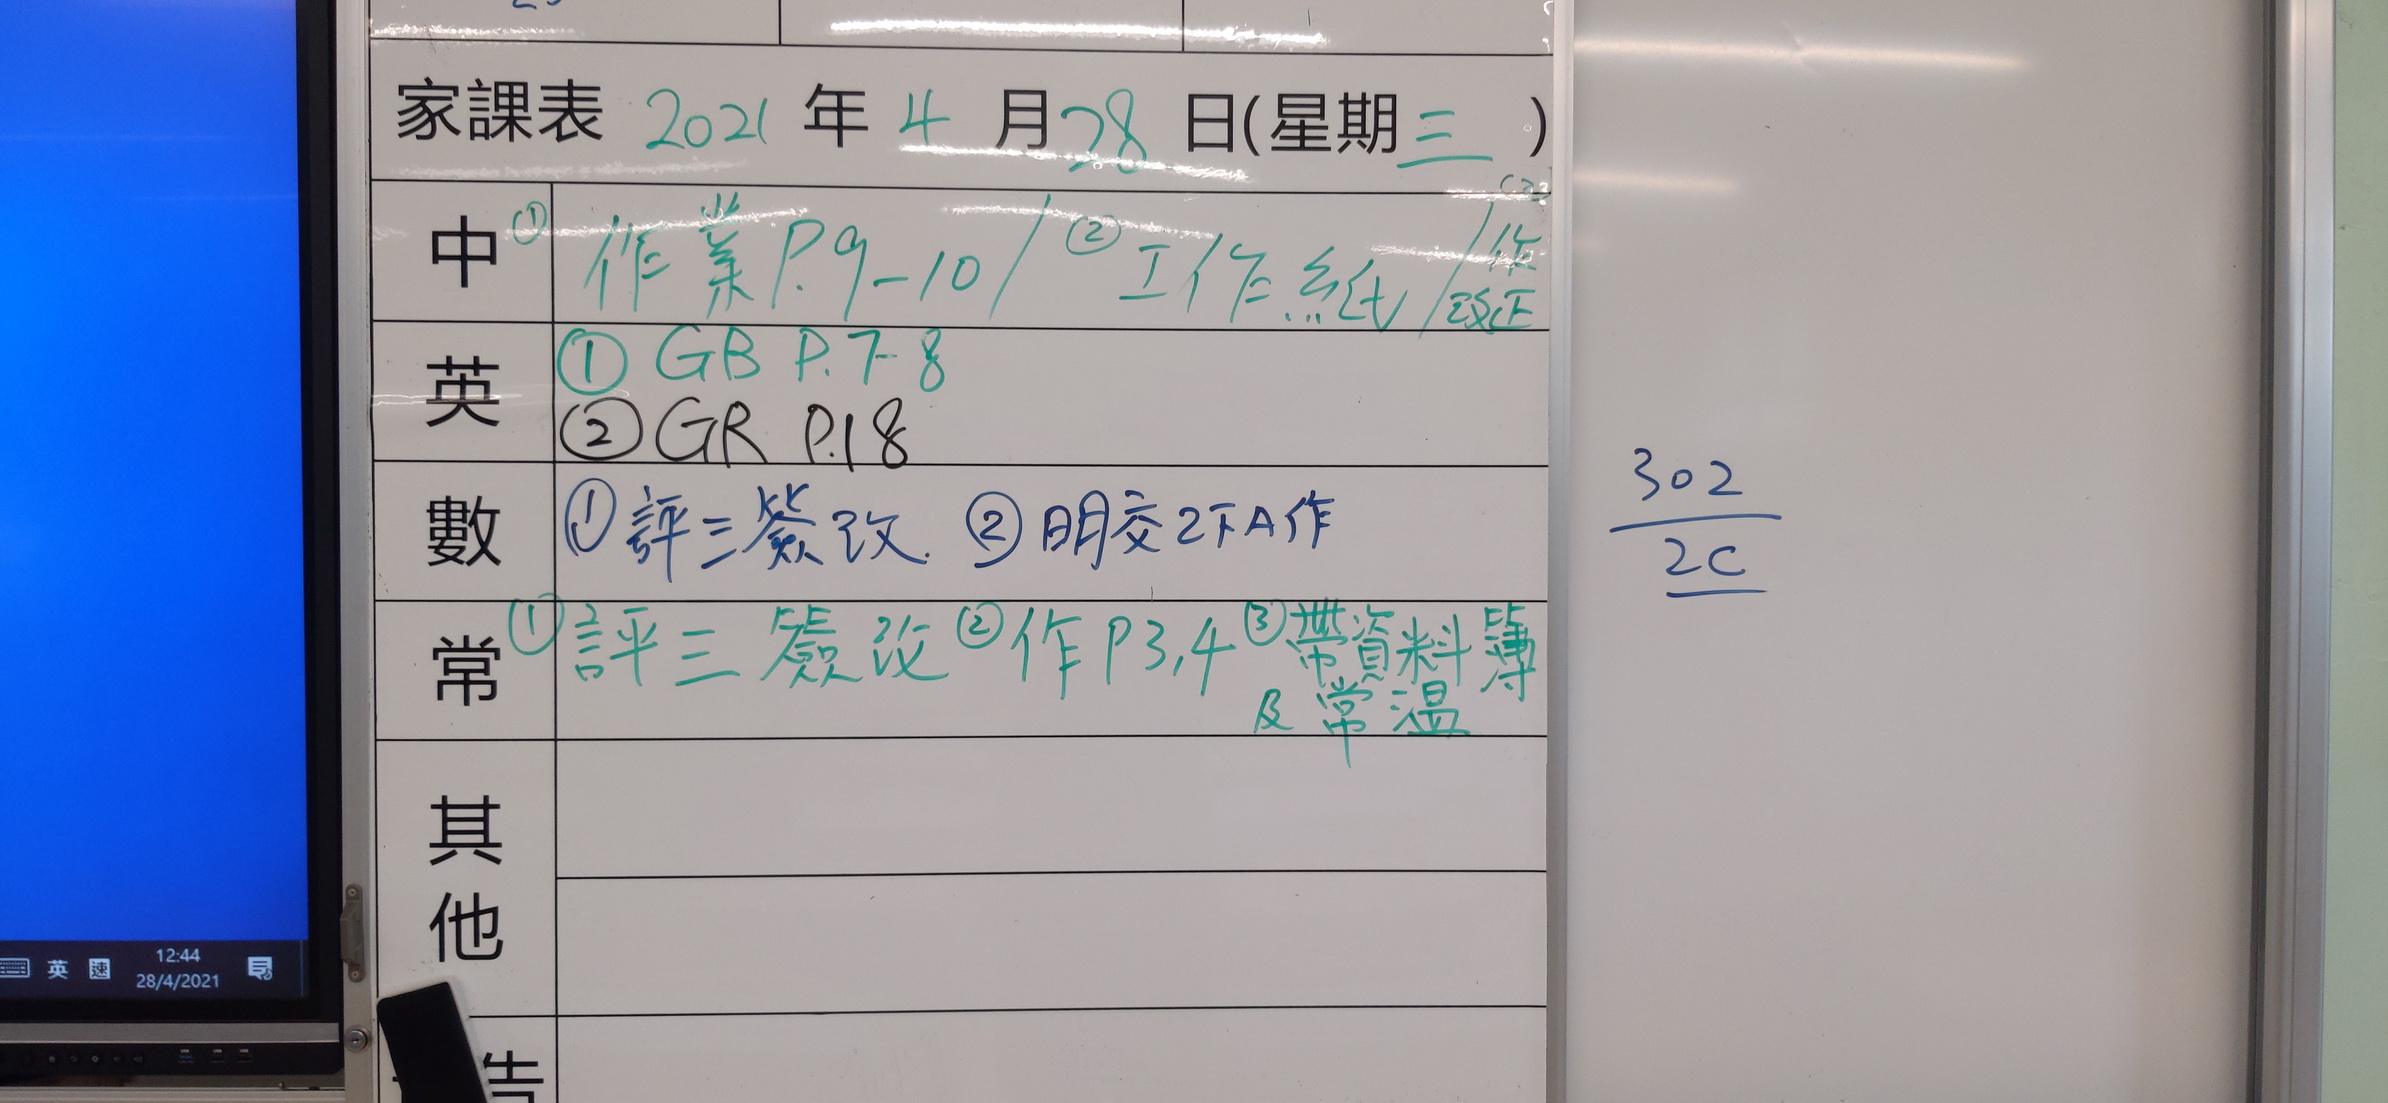 家課表 2021 年 4 月 28 日(星期 三 )
中 ① 作業 P.9-10 / ② 工作紙 / 作
改正
英 ① GB P.7-8
② GR P.18
數 ① 評三簽改. ② 明交2下A作
常 ① 評三簽改 ② 作 P3,4 ③ 帶資料簿
及常溫
其
他
告
302
2C
英 速 12:44
28/4/2021